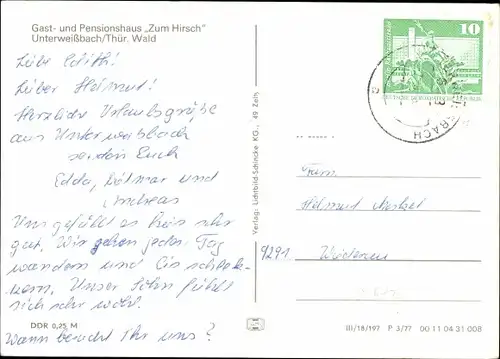 Gast- und Pensionshaus „Zum Hirsch"
Unterweißbach/Thür. Wald
Liebe Edith!
Lieber Helmut!
Herzliche Urlaubsgrüße
aus Unterweißbach
senden Euch
Edda, Dietmar und
Andreas
Uns gefällt es hier sehr
gut. Wir gehen jeden Tag
wandern und
Unser Sohn fühlt
sich sehr wohl.
Wann besucht Ihr uns?
DDR 0,25 M
Verlag: Lichtbild-Schincke KG., 49 Zeitz
10
BACH
Fam.
Helmut
9291 Wiederau
III/18/197 P 3/77 00 11 04 31 008